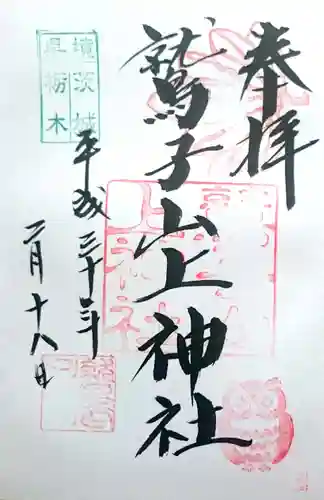 奉拝
鷲子山上神社
平成三十年
二月十八日
茨城
県栃木
境